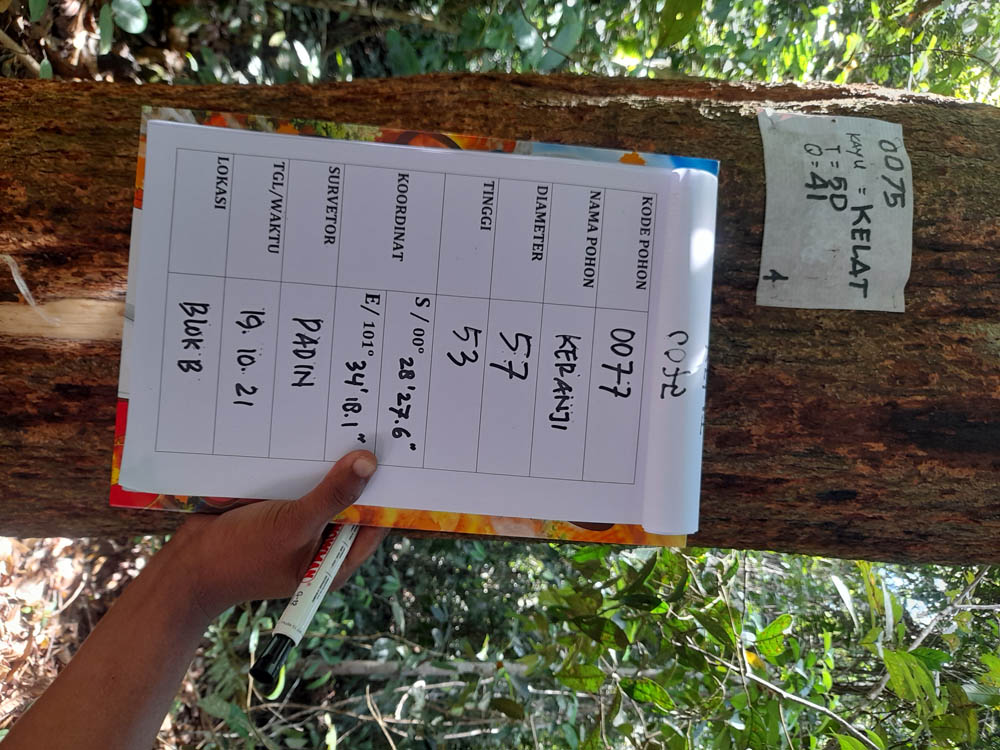 0075
KAYU = KELAT
T = 50
Q = 41
4
KODE POHON 0077
NAMA POHON KERANJI
DIAMETER 57
TINGGI 53
KOORDINAT
S / 00° 28'27.6"
E/ 101° 34'18.1"
SURVETOR DADIN
TGL/WAKTU 19. 10. 21
LOKASI BLOK B
SNOWMAN G-12